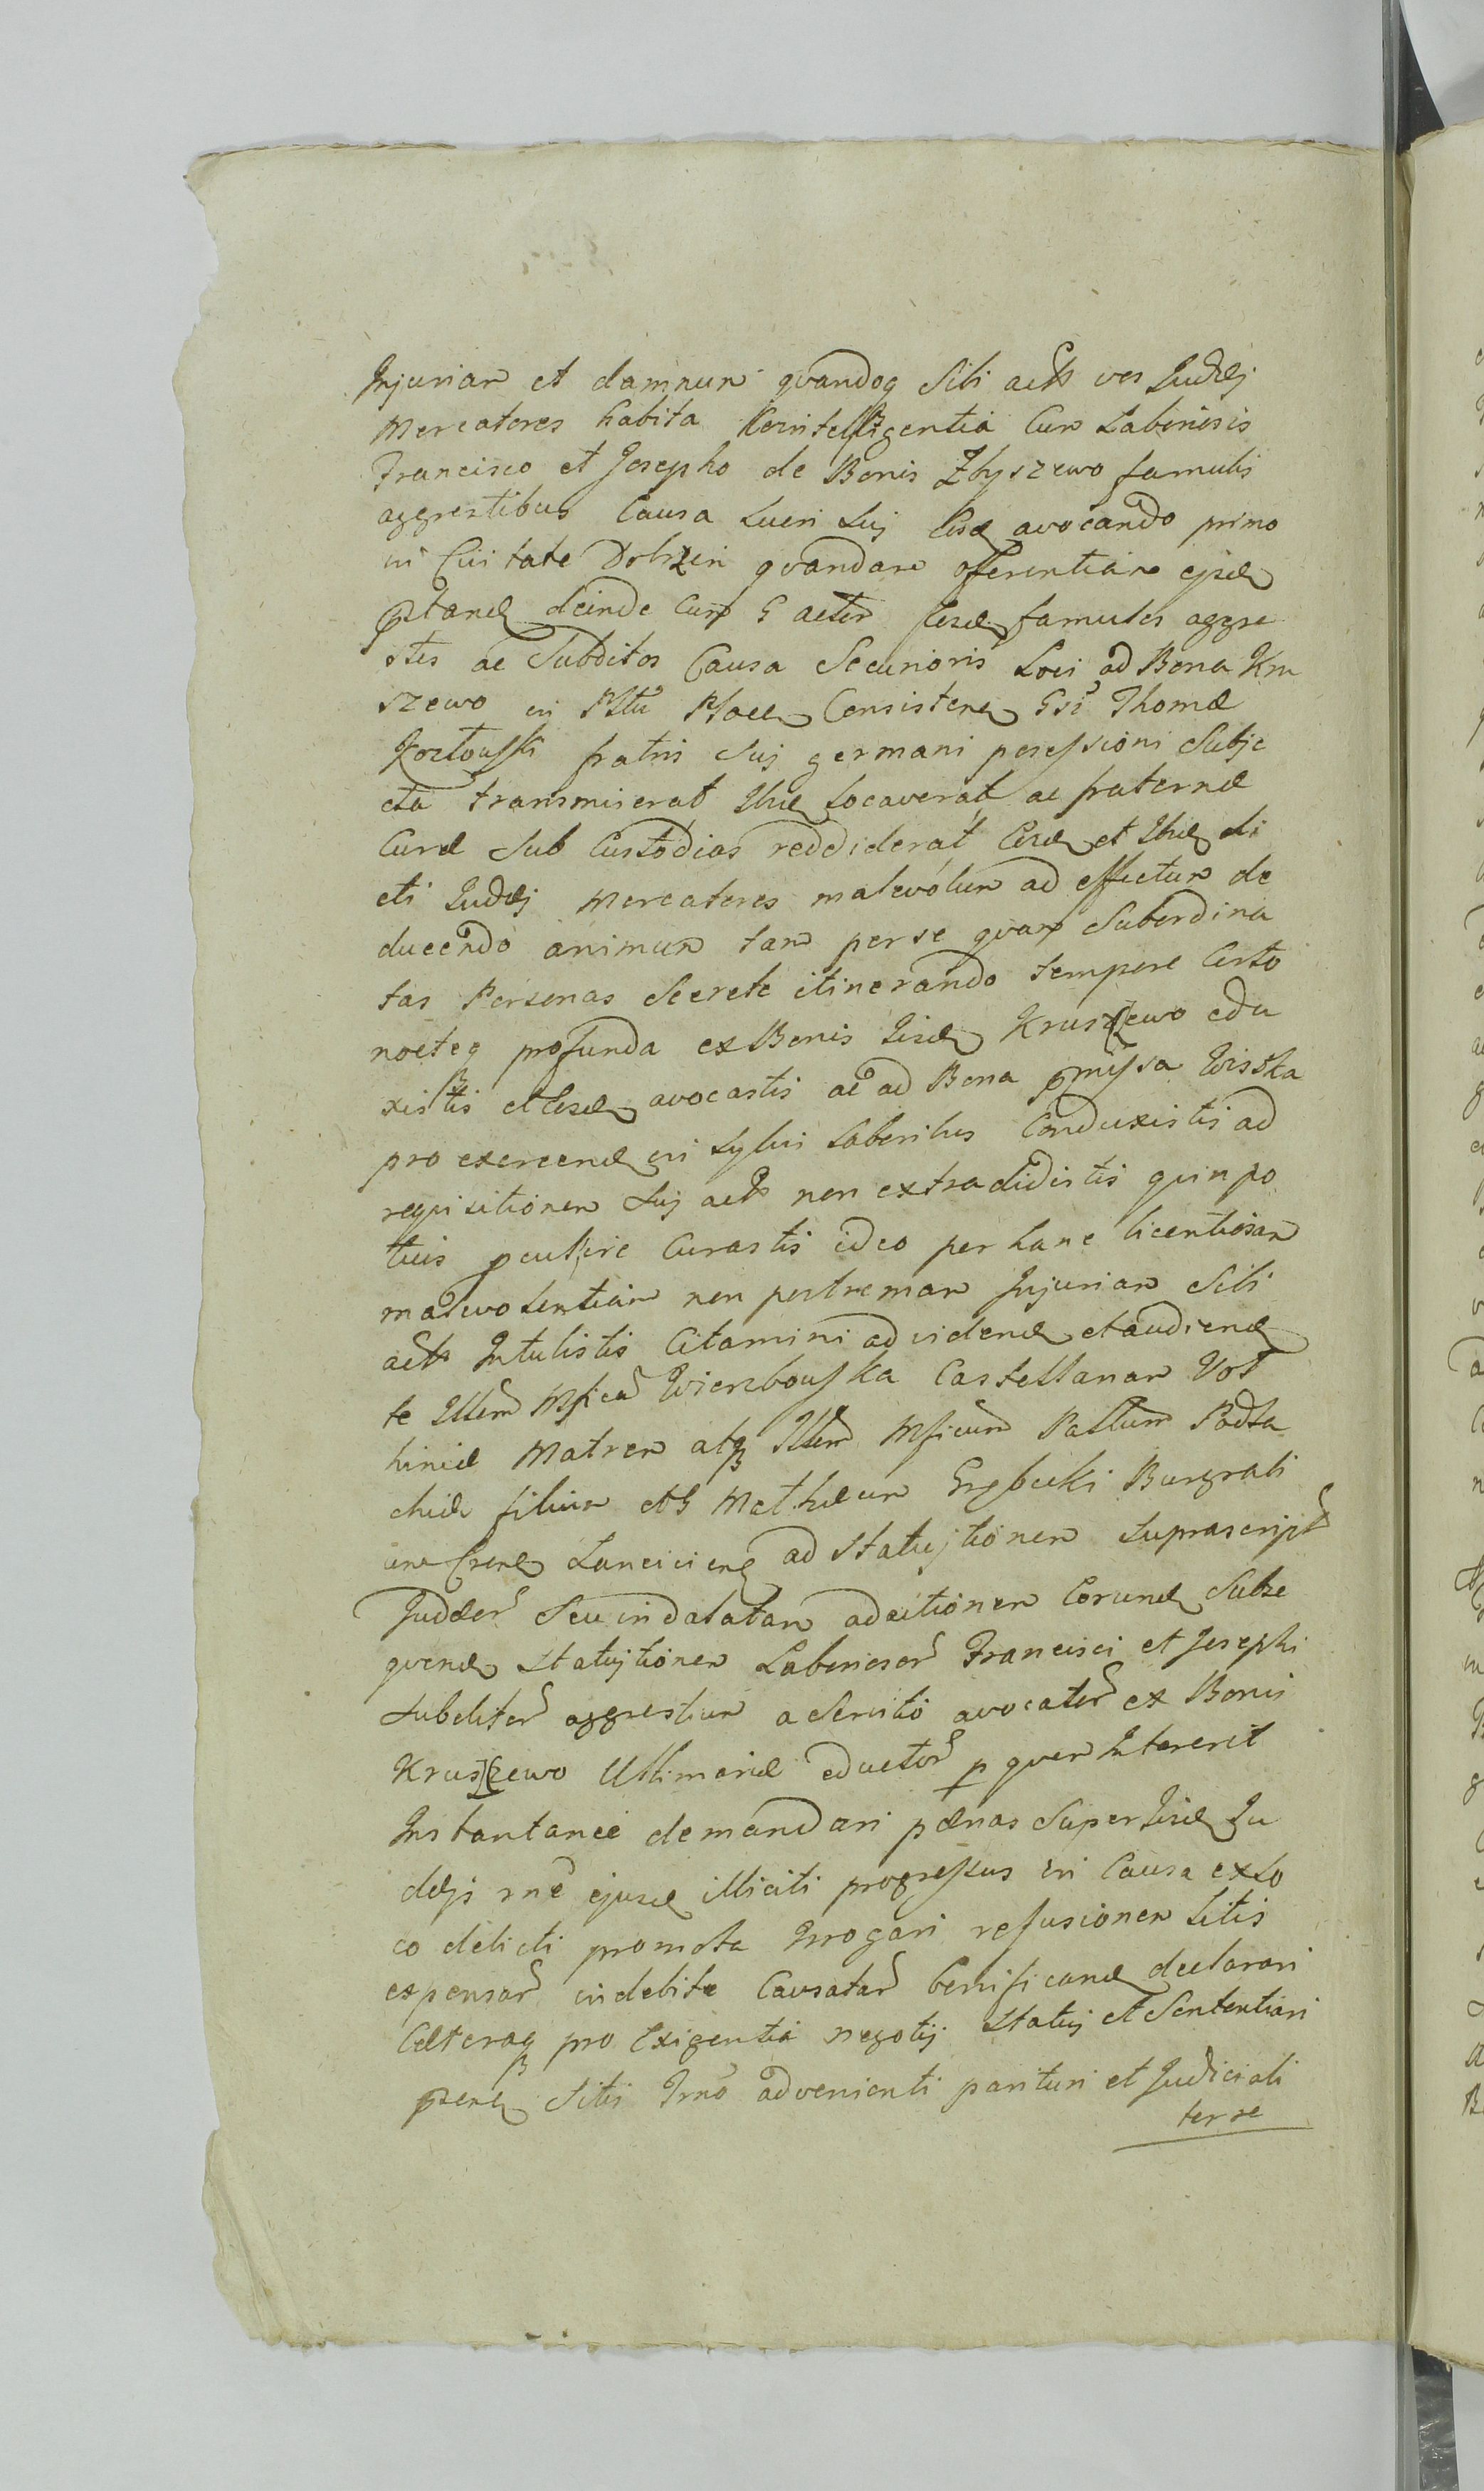 Injuriam et damnum quandoq Sibi actts vos Judæj
Mercatores habita Cointelligentia Cum Laboriosis
Francisco et Josepho de Bonis Zbyszewo famulis
aggrestibus Causa Lucri Suj Eosd avocando primo
in Civitate Dobrzen quandam offerentiam ejsd
pstand deinde Cum G actor eosd famulos aggre
stes ac Subditos Causa Securioris Loci ad Bona Kru
szewo in Pltu Ploccn Consisten Gsi Thomæ
fratris Suj germani possessioni Subje
cta transmiserat Ibid Locaverat ac fraternæ
Curæ Sub Custodias reddiderat Eosd et Ibid di
cti Judæj Mercatores malevolum ad effectum de
ducendo animum tam per se quam Subordina
tas Personas Secrete itinerando tempore Certo
nocteq profunda ex Bonis Iisd Kruszewo edu
xistis et Eosd avocastis ac ad Bona pmissa Wistka
pro exercend in Sylvis Laboribus Conduxistis ad
requisitionem Suj actts non extradidistis quin po
tius Curastis ideo per hanc licentiosam
malevolentiam non postremam Injuriam Sibi
actts Intulistis Citamini ad videnð et audienð
te Illem Mficam Wierzbouska Castellanam Vol
hiniæ Matrem atq Illem Mficum Paulum Podsta
chidæ filium et G Mathæum Grzbecki Burgrabi
um Csren Lancicien ad Statujtionem Suprascript
Judæor Seu in dalatam adcitionem Eorund Subse
quend Statujtionem Laboriosor Francisci et Josephi
Subditor aggrestium a Servitio avocator ex Bonis
Kruszewo Ultimarie eductor p quem Intererit
Instantanee demandari pænas Super Iisd Ju
dæjs rne ejusd illiciti progressus in Causa ex lo
co delicti promota Irrogari refusionem Litis
expensar indebite Causatar bonificand declarari
Cæteraq pro Exigentia negotij Statuj et Sententiari
Sitis Trno advenienti parituri et Judiciali
ter re